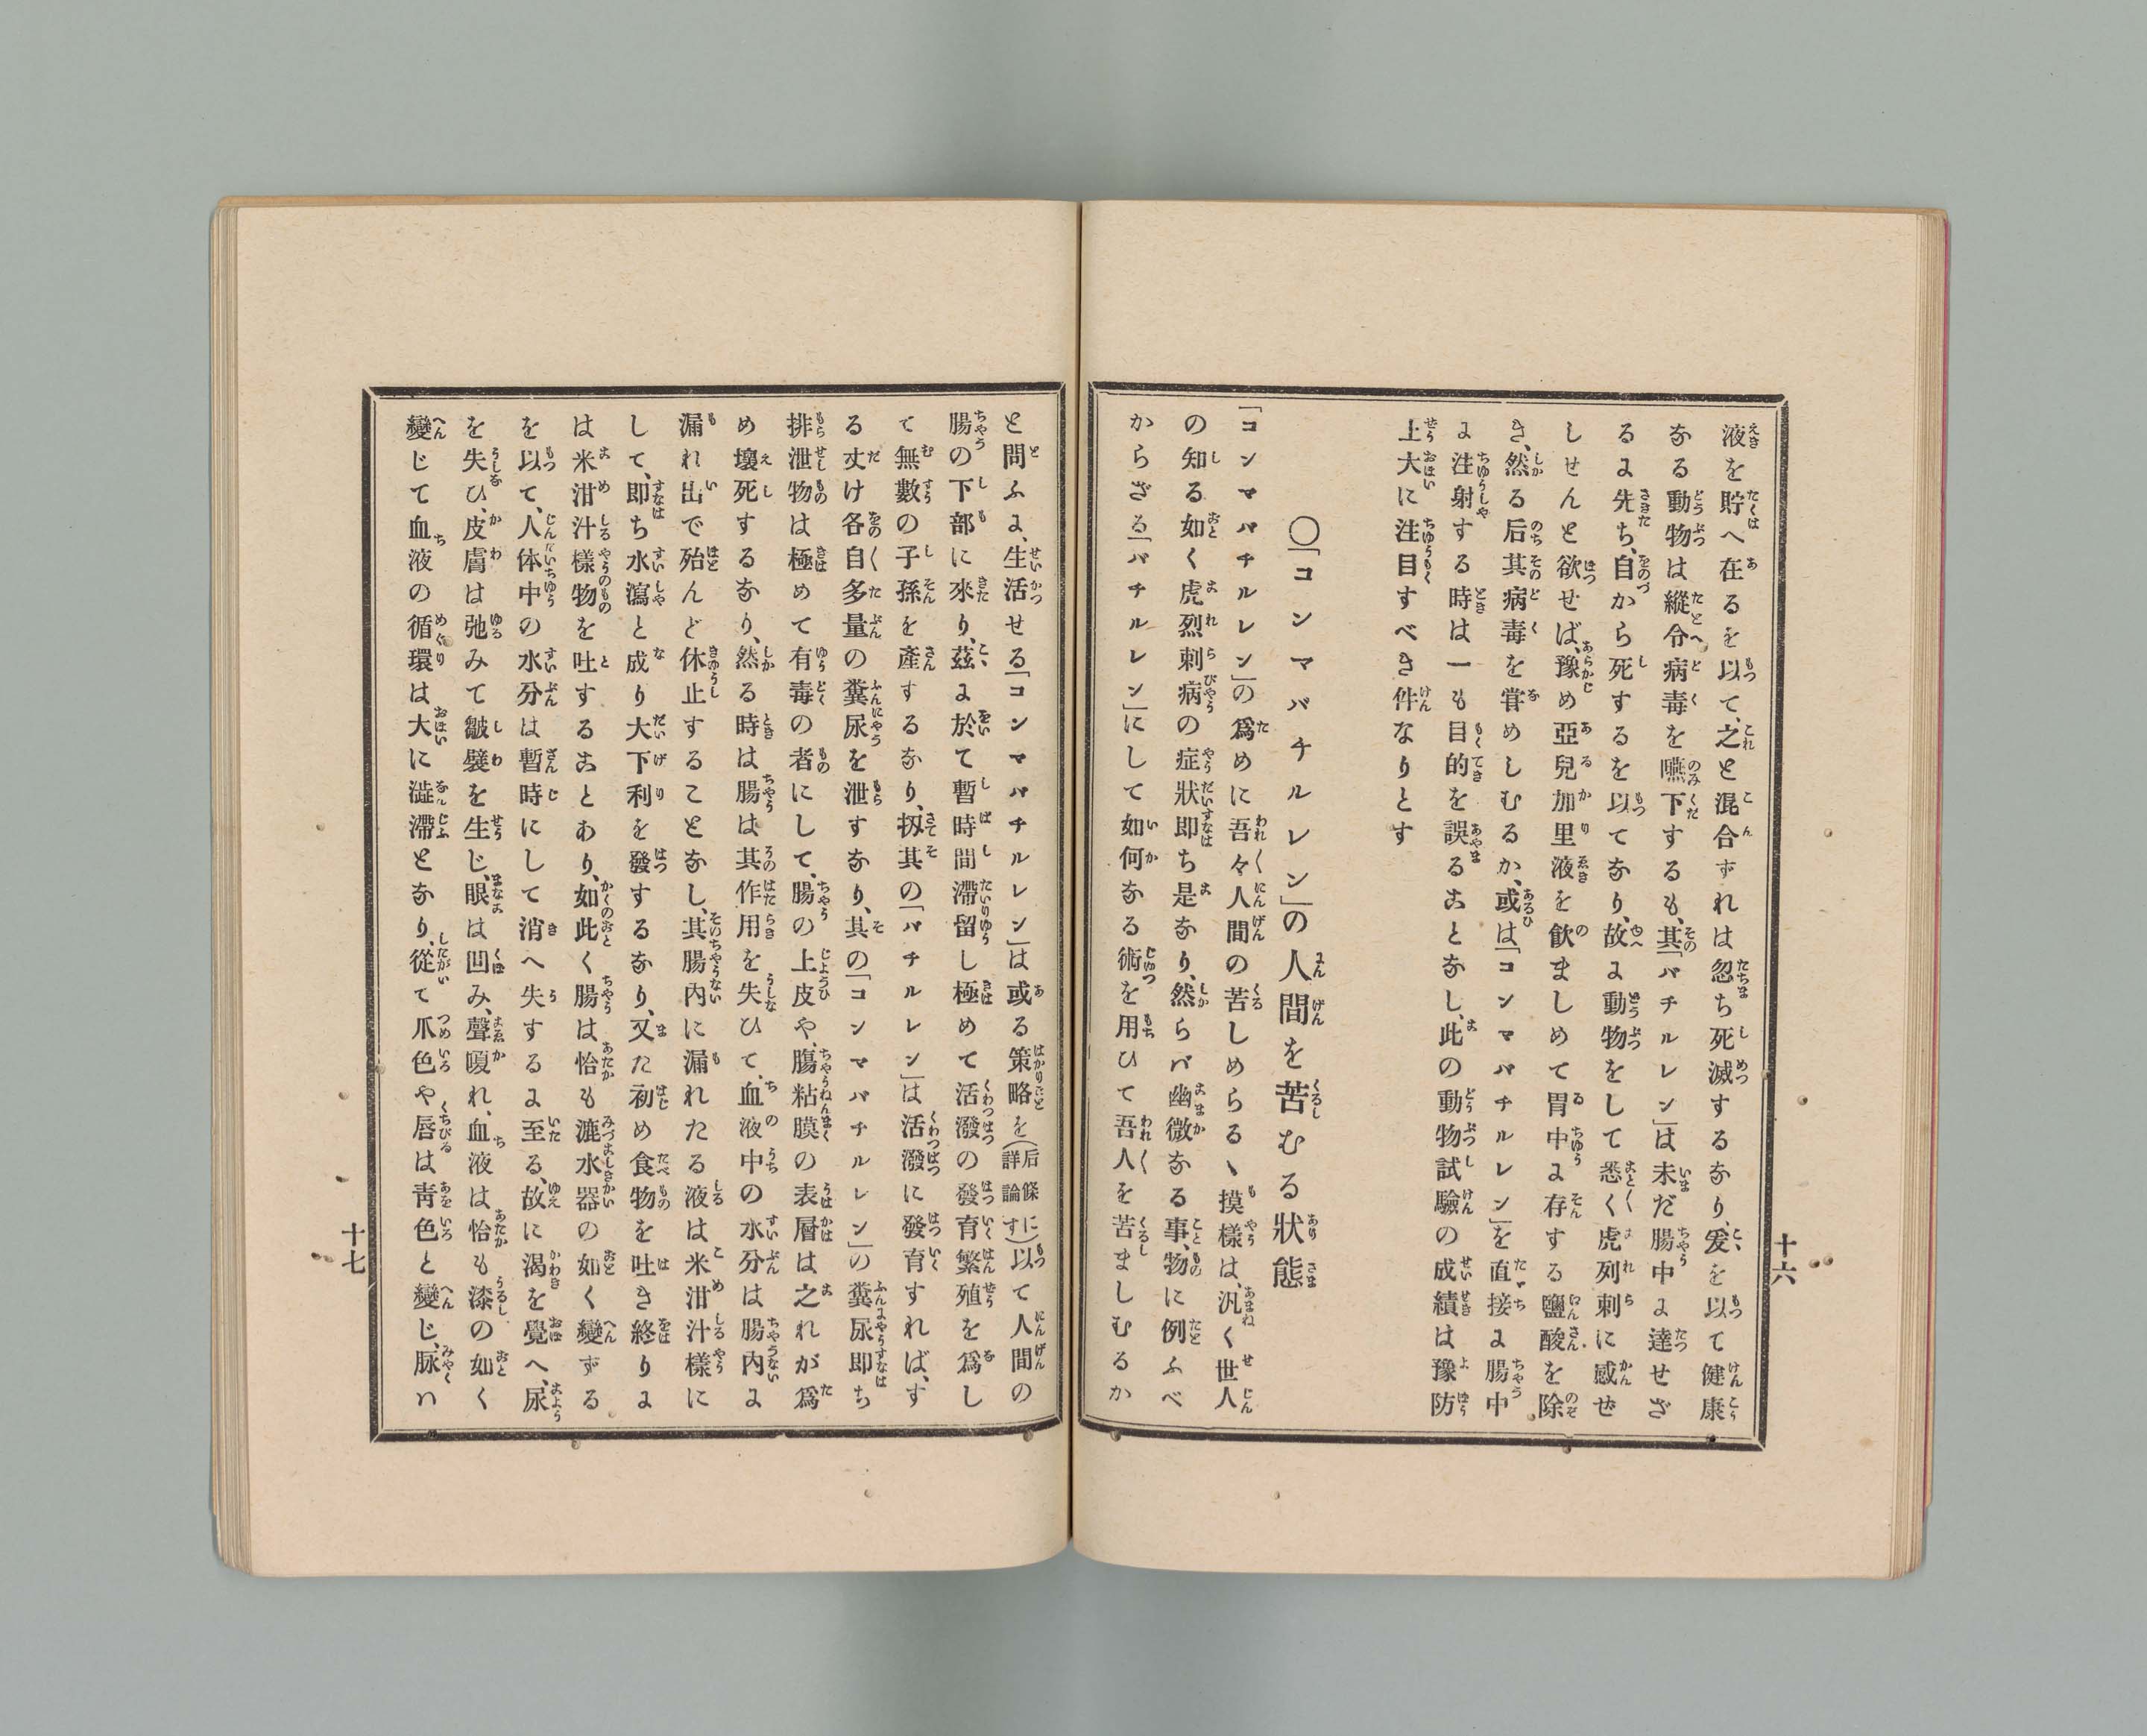 液を貯へ在るを以て、之と混合ずれは忽ち死滅するなり、爰を以て健康
なる動物は縱令病毒を嚥下するも、其「バチルレン」は未だ腸中よ達せざ
るよ先ち、自から死するを以てなり、故よ動物をして悉く虎列刺に感ぜ
しせんと欲せば、豫め亞兒加里液を飮ましめて胃中よ存する鹽酸を除
き、然る后其病毒を甞めしむるか、或は「コンマバチルレン」を直接よ腸中
よ注射する時は一も目的を誤ることなし、此の動物試驗の成績は豫防
上大に注目すべき件なりとす
〇「コンマバチルレン」の人間を苦むる狀態
「コンマバチルレン」の爲めに吾々人間の苦しめらるヽ摸樣は、汎く世人
の知る如く虎烈刺病の症狀即ち是なり、然らバ幽微なる事、物に例ふべ
からざる「バチルレン」にして如何なる術を用ひて吾人を苦ましむるか
十六
と問ふよ、生活せる「コンマバチルレン」は或る策略を(后條に詳論す)以て人間の
腸の下部に來り、茲よ於て暫時間滯留し極めて活潑の發育繁殖を爲し
て無數の子孫を產するなり、扨其の「バチルレン」は活潑に發育すれば、す
る丈け各自多量の糞尿を泄すなり、其の「コンマバチルレン」の糞尿即ち
排泄物は極めて有毒の者にして、腸の上皮や、膓粘膜の表層は之れが爲
め壞死するなり、然る時は腸は、其作用を失ひて、血液中の水分は腸內よ
漏れ出で殆んど休止することなし、其腸內に漏れたる液は米泔汁樣に
して、即ち水瀉と成り大下利を發するなり、又た初め食物を吐き終りよ
は米泔汁樣物を吐することあり、如此く腸は恰も漉水器の如く變ずる
を以て、人体中の水分は暫時にして消へ失するよ至る、故に渴を覺へ、尿
を失ひ、皮膚は弛みて皺襞を生じ、眼は凹み、聲嗄れ、血液は恰も漆の如く
變じて血液の循環は大に澁滯となり、從て爪色や唇は靑色と變じ、脈ハ
十七